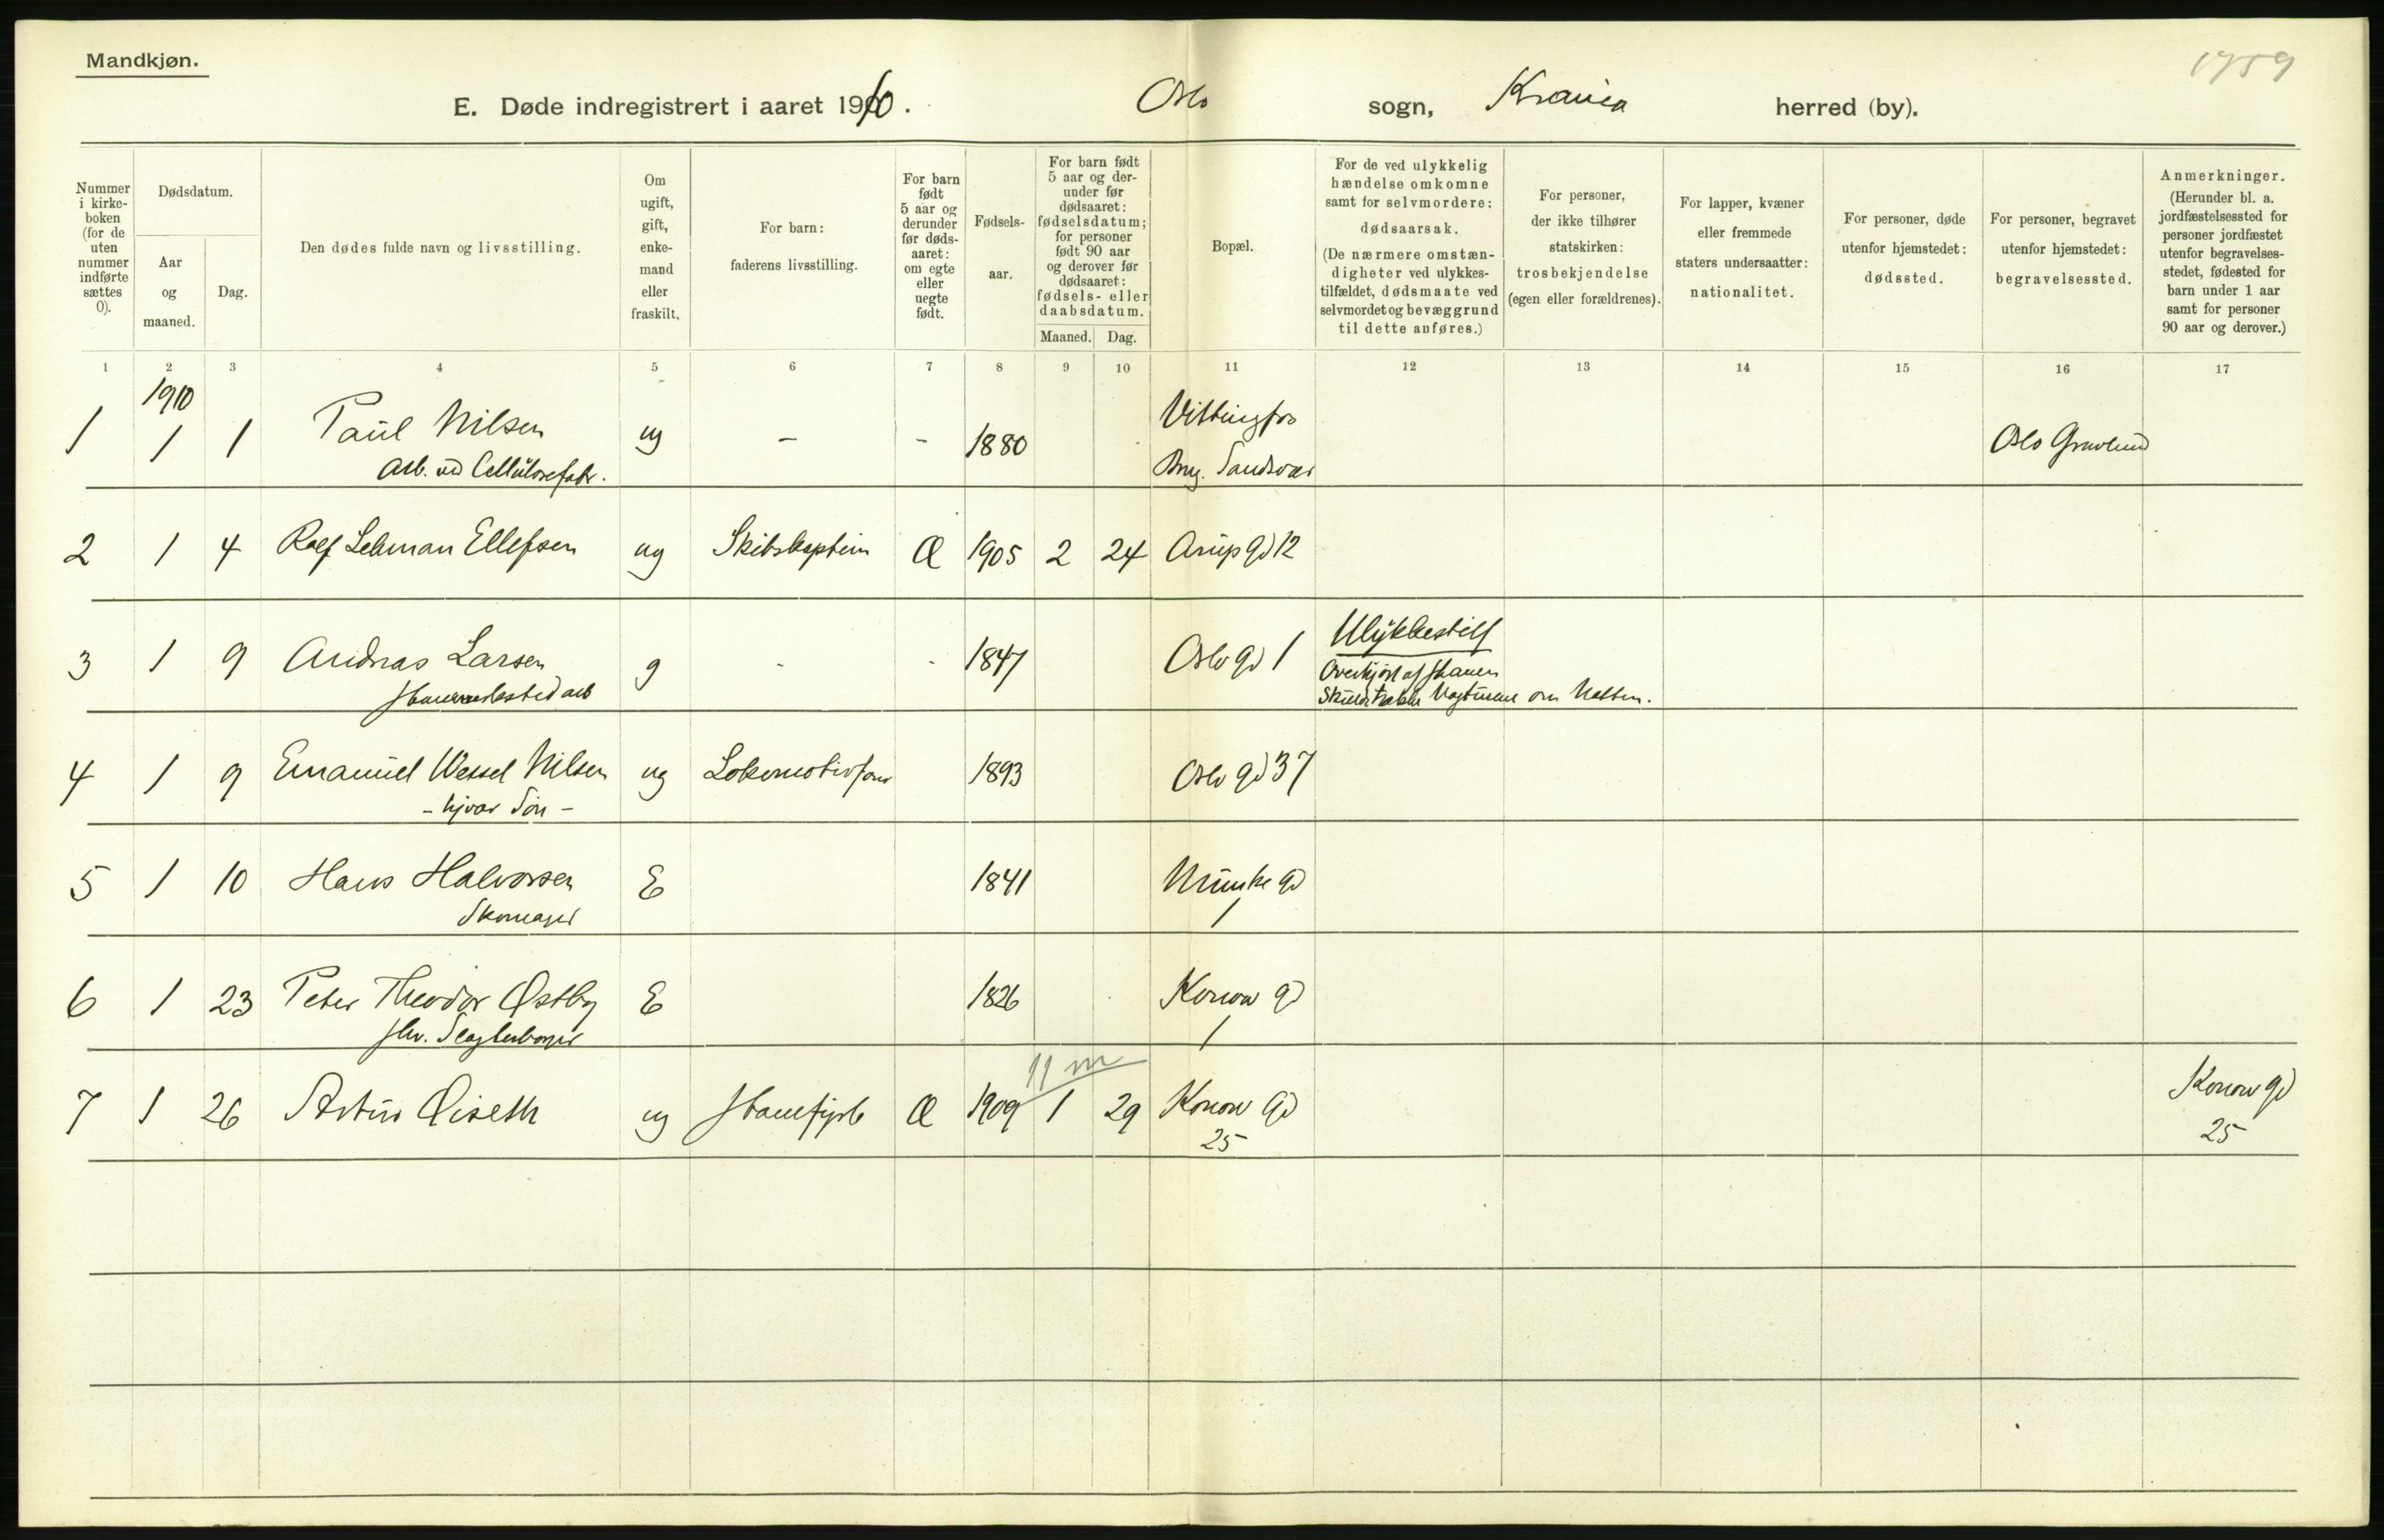 Mandkjøn.
1759
E. Døde indregistrert i aaret 1910. Oslo sogn, Krania herred (by).
Nummer i kirke-boken (for de uten nummer indførte sættes 0).
Dødsdatum.
Aar og maaned.
Dag.
Den dødes fulde navn og livsstilling.
Om ugift, gift, enke-mand eller fraskilt.
For barn: faderens livsstilling.
For barn født 5 aar og derunder før døds-aaret: om egte eller uegte født.
Fødsels-aar.
For barn født 5 aar og der-under før dødsaaret: fødselsdatum; for personer født 90 aar og derover før dødsaaret: fødsels- eller daabsdatum.
Maaned. Dag.
Bopæl.
For de ved ulykkelig hændelse omkomne samt for selvmordere: dødsaarsak. (De nærmere omstæn-digheter ved ulykkes-tilfældet, dødsmaate ved selvmordet og bevæggrund til dette anføres.)
For personer, der ikke tilhører statskirken: trosbekjendelse (egen eller forældrenes).
For lapper, kvæner eller fremmede staters undersaatter: nationalitet.
For personer, døde utenfor hjemstedet: dødssted.
For personer, begravet utenfor hjemstedet: begravelsessted.
Anmerkninger. (Herunder bl. a. jordfæstelsessted for personer jordfæstet utenfor begravelses-stedet, fødested for barn under 1 aar samt for personer 90 aar og derover.)
1 2 3 4 5 6 7 8 9 10 11 12 13 14 15 16 17
1910
1 1 1 Paul Nilsen ug - - 1880 Oslo Gravlund
Arb. ved Cellulosefabr. Sandsvær
2 1 4 Rolf Lehman Ellefsen ug Skibskaptein Æ 1905 2 24 Arup gd 12
3 1 9 Andreas Larsen g - - 1847 Oslo gd 1 Ulykkestilf
Overkjørt af
om Natten.
4 1 9 Emanuel Wessel Nilsen ug Lokomotivfører 1893 Oslo gd 37
- hjvær Søn -
5 1 10 Hans Halvorsen E 1841 Munke gd
Skomager 1
6 1 23 Peter Theodor Østby E 1826 Konow gd
fhv. Slagterborger 1
11 m
7 1 26 Artur Øiseth ug Æ 1909 1 29 Konow gd Konow gd
25 25